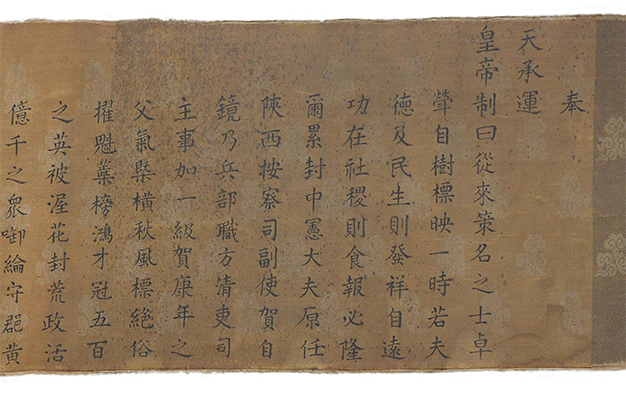 奉
天承運
皇帝制曰從來策名之士卓
犖自樹標映一時若夫
德及民生則發祥自遠
功在社稷則食報必隆
爾累封中憲大夫原任
陝西按察司副使賀自
鏡乃兵部職方清吏司
主事加一級賀康年之
父氣槩橫秋風標絕俗
擢魁蘂榜鴻才冠五百
之英被渥花封荒政活
億千之衆啣綸守郡黃